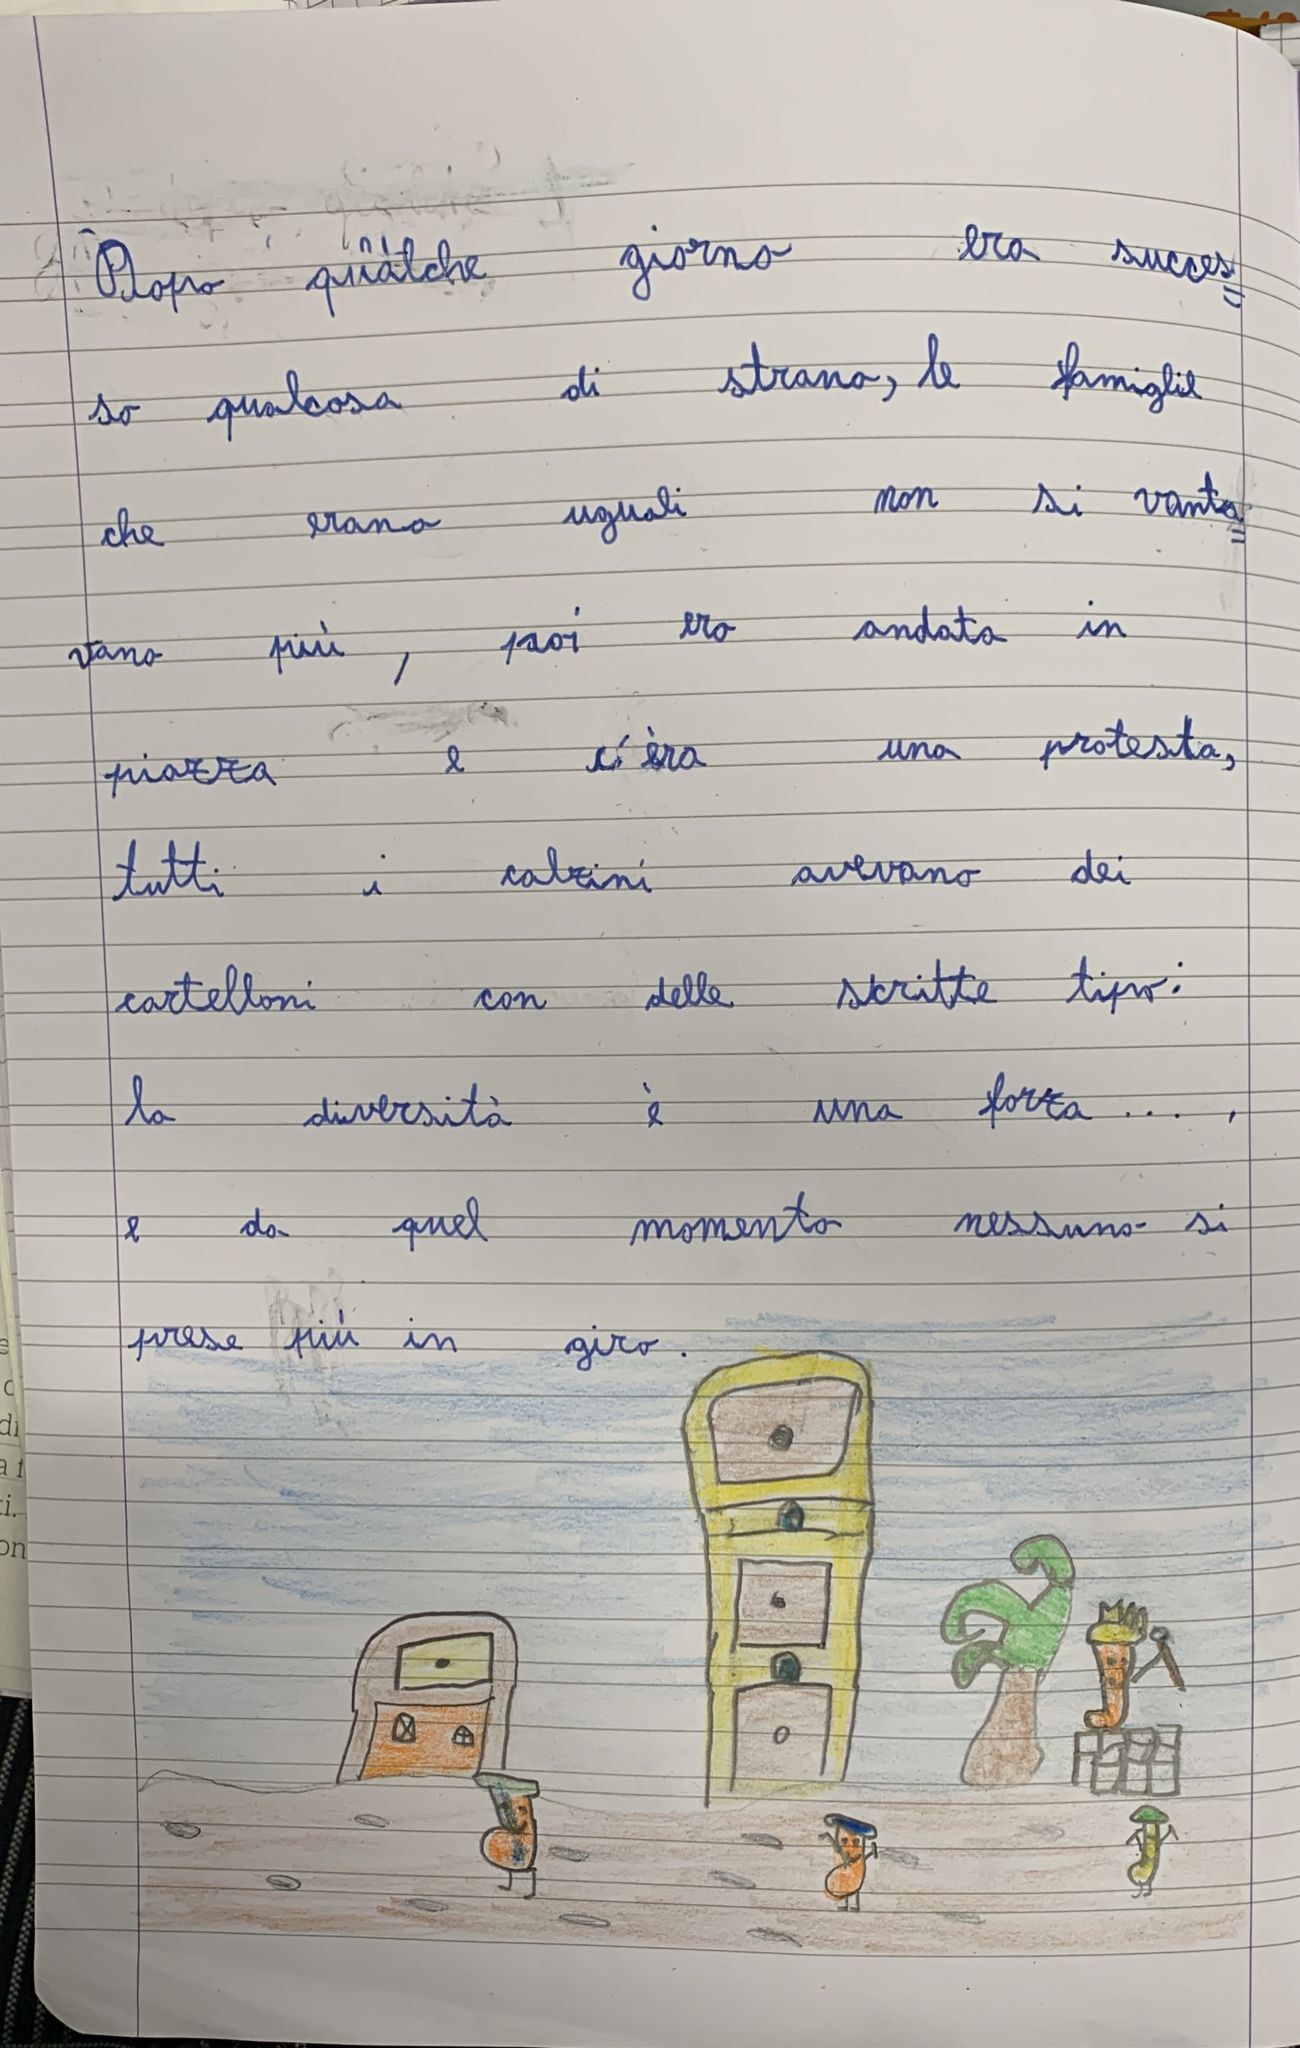 Dopo qualche giorno era succes=
so qualcosa di strano, le famiglie
che erano uguali non si vanta=
vano più, poi ero andata in
piazza e c'èra una protesta,
tutti i calzini avevano dei
cartelloni con delle scritte tipo:
la diversità è una forza ....,
e da quel momento nessuno si
prese più in giro.